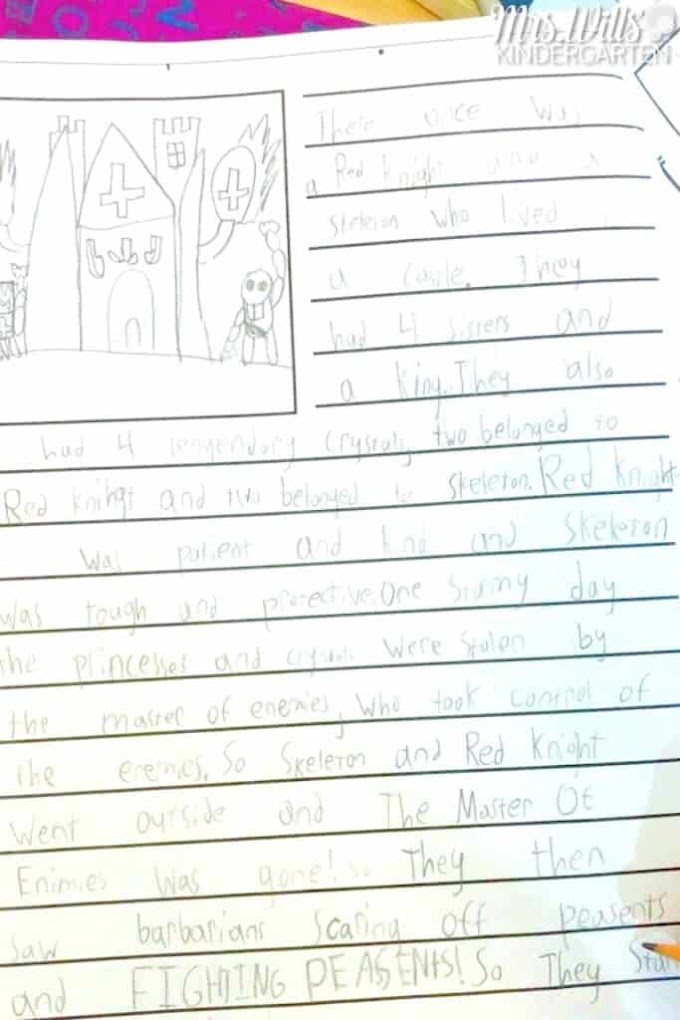 Mrs. Wills
KINDERGARTEN
There once was
a Red Knight and a
skeleton who lived
a castle. They
had 4 sisters and
a King. They also
had 4 lengendary crystals, two belonged to
Red knihgt and two belonged to skeleton. Red Knight
was patient and kind and skeleton
was tough and protective. One stormy day
the princesses and crystals were stolen by
the master of enemies, who took control of
the enemies. So Skeleton and Red Knight
went outside and The Master Of
Enimies was gone! so They then
saw barbarians scaring off peasents
and FIGHTING PEASENTS! So They